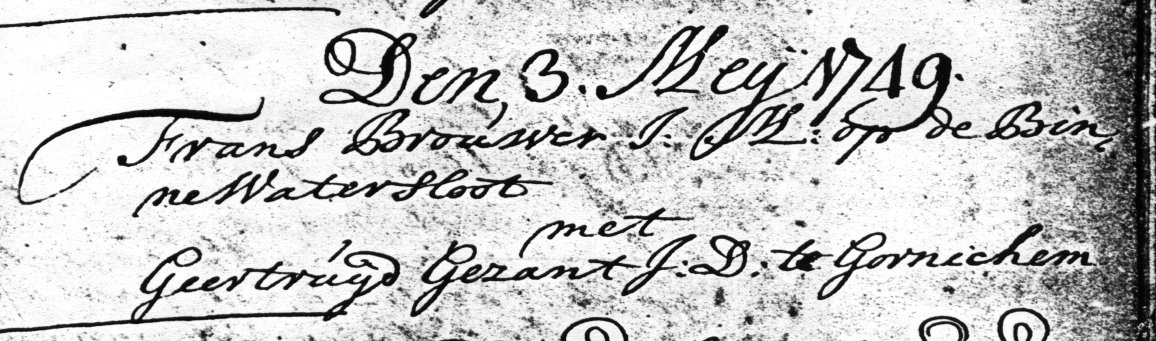 Den, 3. Meÿ 1749.
Frans Brouwer J: M: op de Bin,
neWatersloot
met
Geertruÿd Gezant J: D: te Gornichem